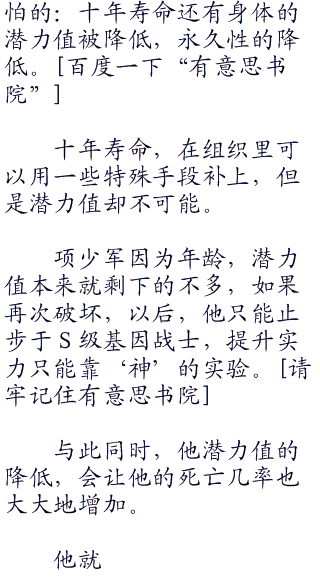 怕的：十年寿命还有身体的
潜力值被降低，永久性的降
低。[百度一下“有意思书
院”]
十年寿命，在组织里可
以用一些特殊手段补上，但
是潜力值却不可能。
项少军因为年龄，潜力
值本来就剩下的不多，如果
再次破坏，以后，他只能止
步于S级基因战士，提升实
力只能靠‘神’的实验。[请
牢记住有意思书院]
与此同时，他潜力值的
降低，会让他的死亡几率也
大大地增加。
他就